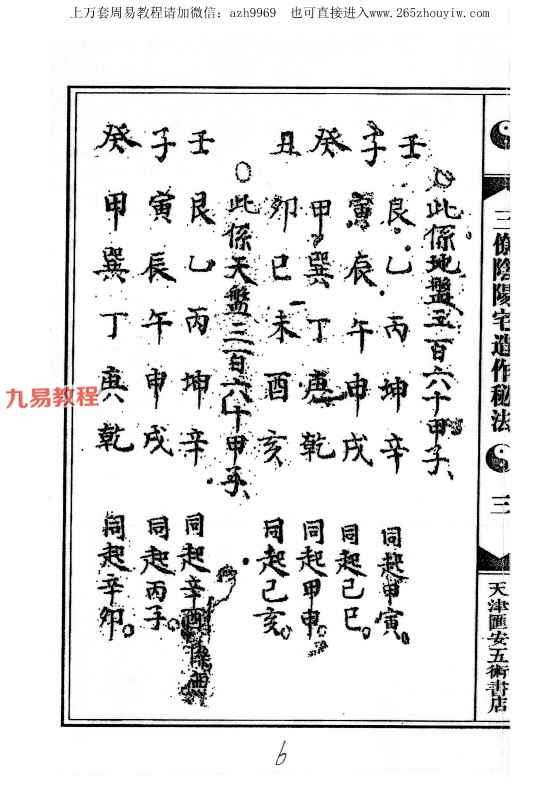 上万套周易教程请加微信：azh9969　也可直接进入www.265zhouyiw.com
三僚陰陽宅造作秘法
三
天津匯安五術書店
壬艮乙丙坤辛　同起甲寅。
○此係地盤三百六十甲子、
子寅辰午申戌　同起己巳。
癸甲巽丁庚乾　同起甲申。
丑卯巳未酉亥　同起己亥。
○此係天盤三百六十甲子、
壬艮乙丙坤辛　同起辛酉
子寅辰午申戌　同起丙子。
癸甲巽丁庚乾　同起辛卯。
九易教程
6